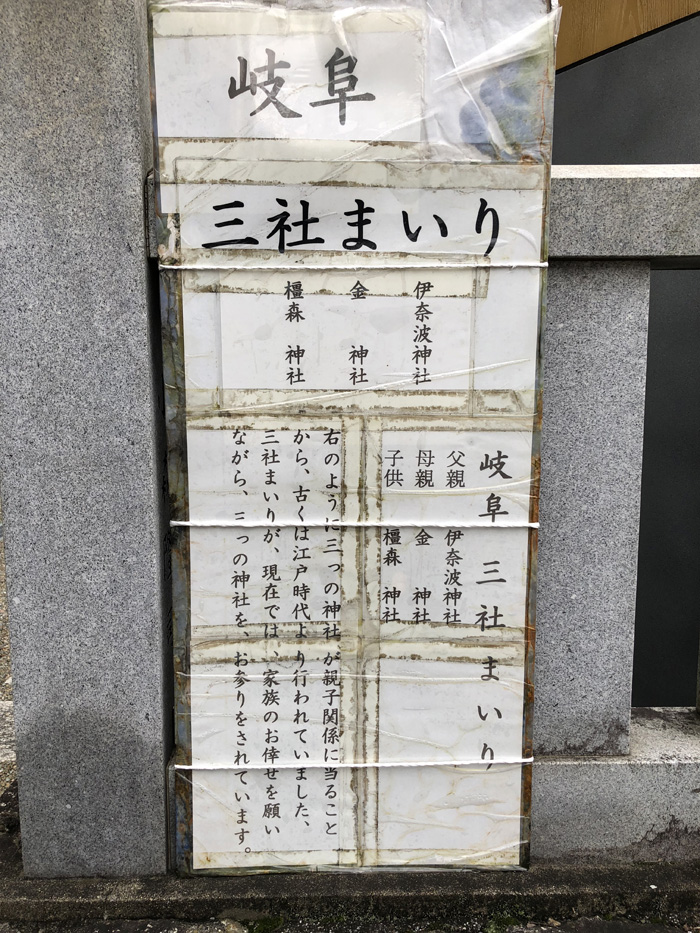 岐阜
三社まいり
伊奈波神社
金 神社
橿森 神社
岐阜三社まいり
父親 伊奈波神社
母親 金 神社
子供 橿森 神社
右のように三っの神社が親子関係に当ること
から、古くは江戸時代より行われていました、
三社まいりが、現在では、家族のお倖せを願い
ながら、三っの神社を、お参りをされています。